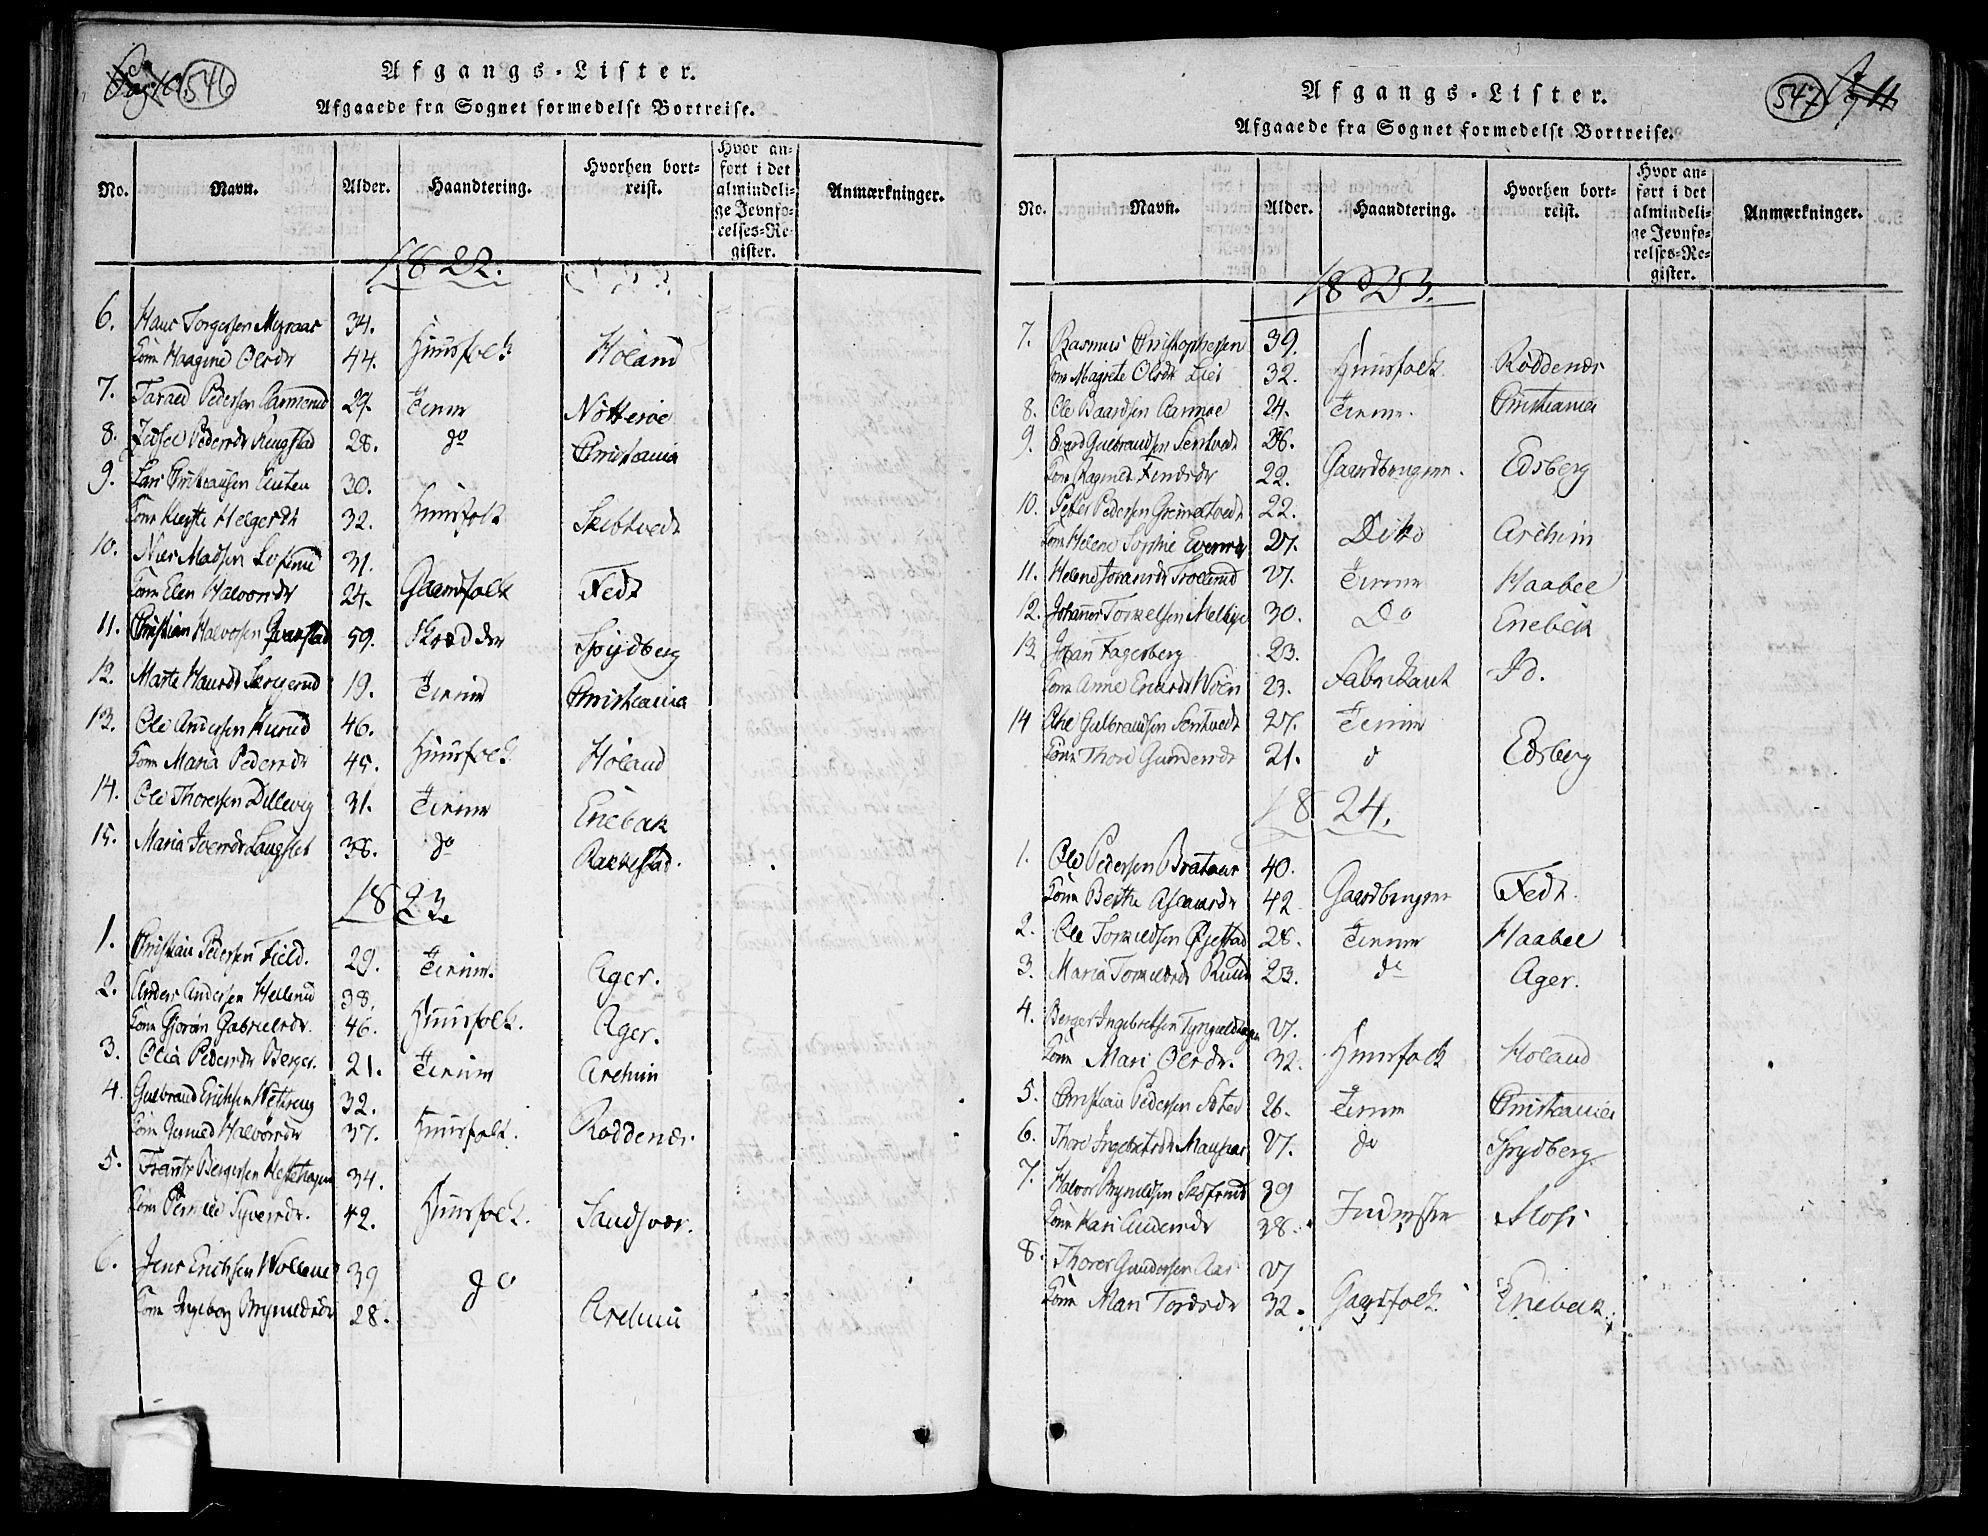 546
Afgangs-Lister.
Afgaaede fra Sognet formedelst Bortreise.
No. Navn. Alder. Haandtering. Hvorhen bortreist. Hvor anført i det almindelige Jevnførelses-Register. Anmærkninger.
1822.
6. Hans Torgersen Myraas 34.
Kone Olsdr 44. Huusfolk Höland
7. Pedersen 29. Tiener Nötteröe
8. Pedersdr Ringstad 28. do Christiania
9. Lars Christiansen 30.
Kone Kirsti Helgesdr 32. Huusfolk Skibtvedt
10. Niels Madsen 31.
Kone Elen Halvorsdr 24. Gaardfolk Fedt
11. Christian Halvorsen 59. Skrædder Spydberg
12. Marte Hansdr 19. Tiener Christiania
13. Ole Andersen 46.
Kone Maria Pedersdr 45. Huusfolk Höland
14. Ole Thoresen Dillevig 31. Tiener Enebak
15. Maria Iversdr Langslet 38. do Rakkestad.
1823.
1. Christian Pedersen Field. 29. Tiener. Ager.
2. Anders Andersen Hellerud 38.
Kone Gjoran Gabrielsdr. 46. Huusfolk. Ager.
3. Olia Pedersdr Berger. 21. Tiener Aremm
4. Gulbrand Erichsen 32.
Kone Halvorsdr 37. Huusfolk. Röddenæs
5. Frantz Bergersen Hestehagen 34.
Kone Pernille Syversdr. 42. Huusfolk. Sandsvær.
6. Jens Erichsen 39
Kone Ingeborg Brynildsdr 28. do
547
Afgangs-Lister.
Afgaaede fra Sognet formedelst Bortreise.
No. Navn. Alder. Haandtering. Hvorhen bortreist. Hvor anført i det almindelige Jevnførelses-Register. Anmærkninger.
1823.
7. Rasmus Christophersen 39.
Kone Magrete Olsdr Lier 32. Huusfolk Röddenæs
8. Ole Baardsen 24. Tiener. Christiania
9. Gulbrandsen 26.
Kone Ragnild 22. Gaardbruger. Edsberg
10. Peter Pedersen Grimstvedt 22.
Kone Helene Sophie 27. Ditto
11. Helene 27. Tiener Haabel
12. Johannes Torkelsen Melbye 30. Do Enebak
13 Johan Fagerberg 23.
Kone Anne 23. Fabrikant Id.
14 Gulbrandsen 27. Tiener
Kone Thore Gundersdr 21. d Edsberg
1824.
1. Ole Pedersen Brataas 40.
Kone Berthe 42 Gaardbruger Fedt.
2. Ole Torkildsen 28. Tiener Haabel
3. Maria Ruud 23. do Ager.
4. Berger Ingebretsen 27.
Kone Mari Olsdr. 32. Huusfolk Holand
5. Christian Pedersen 26. Tiener Christiania
6. Thore Ingebretsdr 27. do Spydberg
7. Halvor Brynildsen 39
Kone Kari 38. Inderste Moss
8. Thores Gundersen Aas 27
Kone Mari Tordsdr 32. Gaardfolk. Enebak.